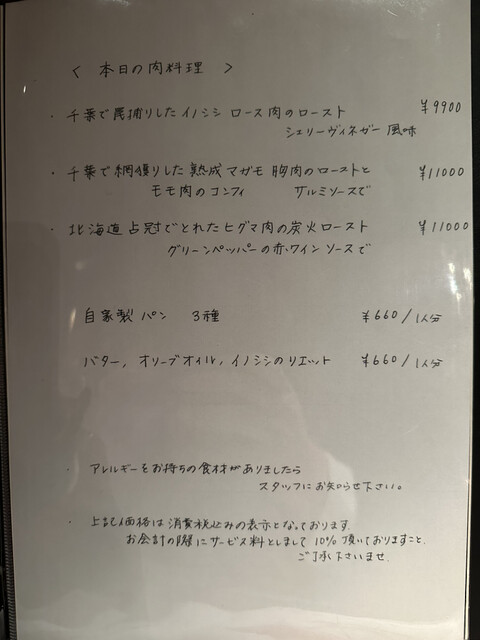 〈 本日の肉料理 〉
・千葉で罠捕りしたイノシシ ロース肉のロースト ¥9900
シェリーヴィネガー風味
・千葉で網獲りした熟成マガモ胸肉のローストと ¥11000
モモ肉のコンフィ サルミソースで
・北海道占冠でとれたヒグマ肉の炭火ロースト ¥11000
グリーンペッパーの赤ワインソースで
自家製パン 3種 ¥660/1人分
バター, オリーブオイル, イノシシのリエット ¥660/1人分
・アレルギーをお持ちの食材がありましたら
スタッフにお知らせ下さい。
・上記価格は消費税込みの表示となっております.
お会計の際にサービス料としまして10%頂いておりますこと.
ご了承下さいませ.